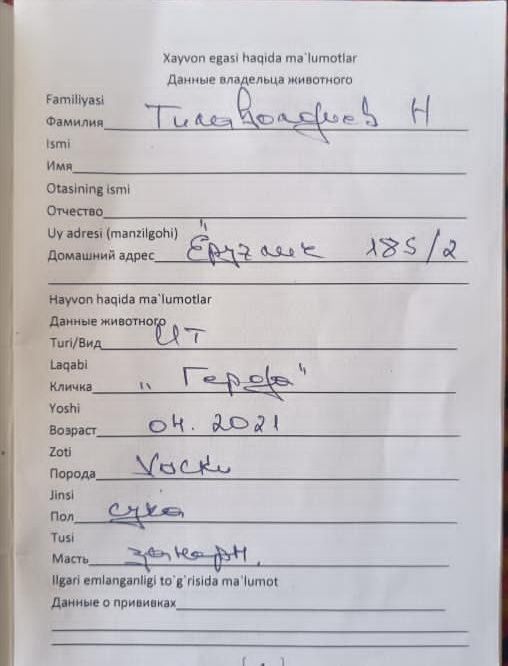 Xayvon egasi haqida ma`lumotlar
Данные владельца животного
Familiyasi
Фамилия Тилаволдиев Н
Ismi
Имя
Otasining ismi
Отчество
Uy adresi (manzilgohi)
Домашний адрес 185/2
Hayvon haqida ma`lumotlar
Данные животного
Turi/Вид ИТ
Laqabi
Кличка "Герда"
Yoshi
Возраст 04. 2021
Zoti
Порода Хаски
Jinsi
Пол сука
Tusi
Масть
Ilgari emlanganligi to`g`risida ma`lumot
Данные о прививках